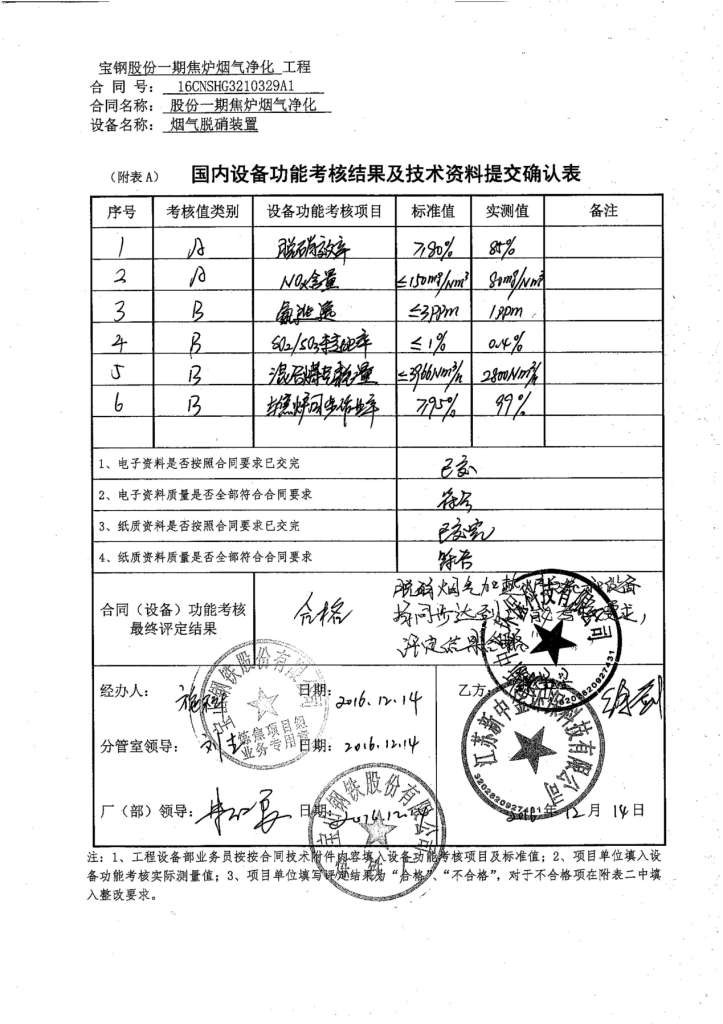 宝钢股份一期焦炉烟气净化 工程
合 同 号： 16CNSHG3210329A1
合同名称： 股份一期焦炉烟气净化
设备名称： 烟气脱硝装置
（附表A） 国内设备功能考核结果及技术资料提交确认表
序号 考核值类别 设备功能考核项目 标准值 实测值 备注
1 A 脱硝效率 ≥80% 85%
2 A NOx含量 ≤150mg/Nm³ 80mg/Nm³
3 B 氨逃逸 ≤3ppm 1ppm
4 B SO2/SO3转化率 ≤1% 0.4%
5 B 混合煤气耗量 ≤3966Nm³/h 2800Nm³/h
6 B 与焦炉同步作业率 ≥95% 99%
1、电子资料是否按照合同要求已交完 已交
2、电子资料质量是否全部符合合同要求 符合
3、纸质资料是否按照合同要求已交完 已交完
4、纸质资料质量是否全部符合合同要求 符合
合同（设备）功能考核
最终评定结果
合格
脱硝烟气加热 设备
同步达到 要求，
评定结果合格
经办人： 日期：2016.12.14 乙方
分管室领导： 日期：2016.12.14
厂（部）领导： 日期：2016.12.14 2016年12月14日
宝山钢铁股份有限公司
炼焦项目组
业务专用章
宝山钢铁股份有限公司
江苏新中金环保科技有限公司
3202820927431
江苏新中金环保科技有限公司
3202820927431
注：1、工程设备部业务员按按合同技术附件内容填入设备功能考核项目及标准值；2、项目单位填入设
备功能考核实际测量值；3、项目单位填写评定结果为“合格”、“不合格”，对于不合格项在附表二中填
入整改要求。